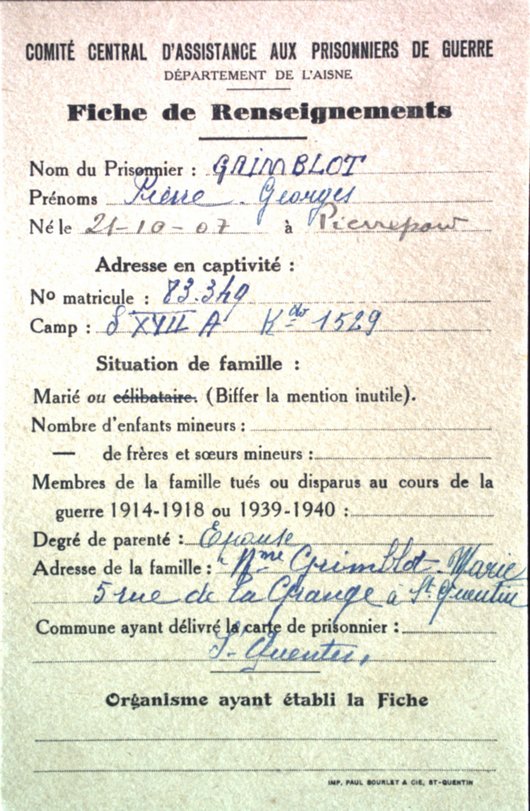 COMITÉ CENTRAL D'ASSISTANCE AUX PRISONNIERS DE GUERRE
DÉPARTEMENT DE L'AISNE
Fiche de Renseignements
Nom du Prisonnier : GRIMBLOT
Prénoms Pierre Georges
Né le 21-10-07 à
Adresse en captivité :
No matricule : 83.349
Camp : S XVII A Kdo 1529
Situation de famille :
Marié ou célibataire. (Biffer la mention inutile).
Nombre d'enfants mineurs :
— de frères et sœurs mineurs :
Membres de la famille tués ou disparus au cours de la
guerre 1914-1918 ou 1939-1940 :
Degré de parenté : Epouse
Adresse de la famille : Mme Grimblot-Marie
5 rue de la Grange à St Quentin
Commune ayant délivré la carte de prisonnier :
St-Quentin,
Organisme ayant établi la Fiche
IMP. PAUL BOURLET & CIE, ST-QUENTIN